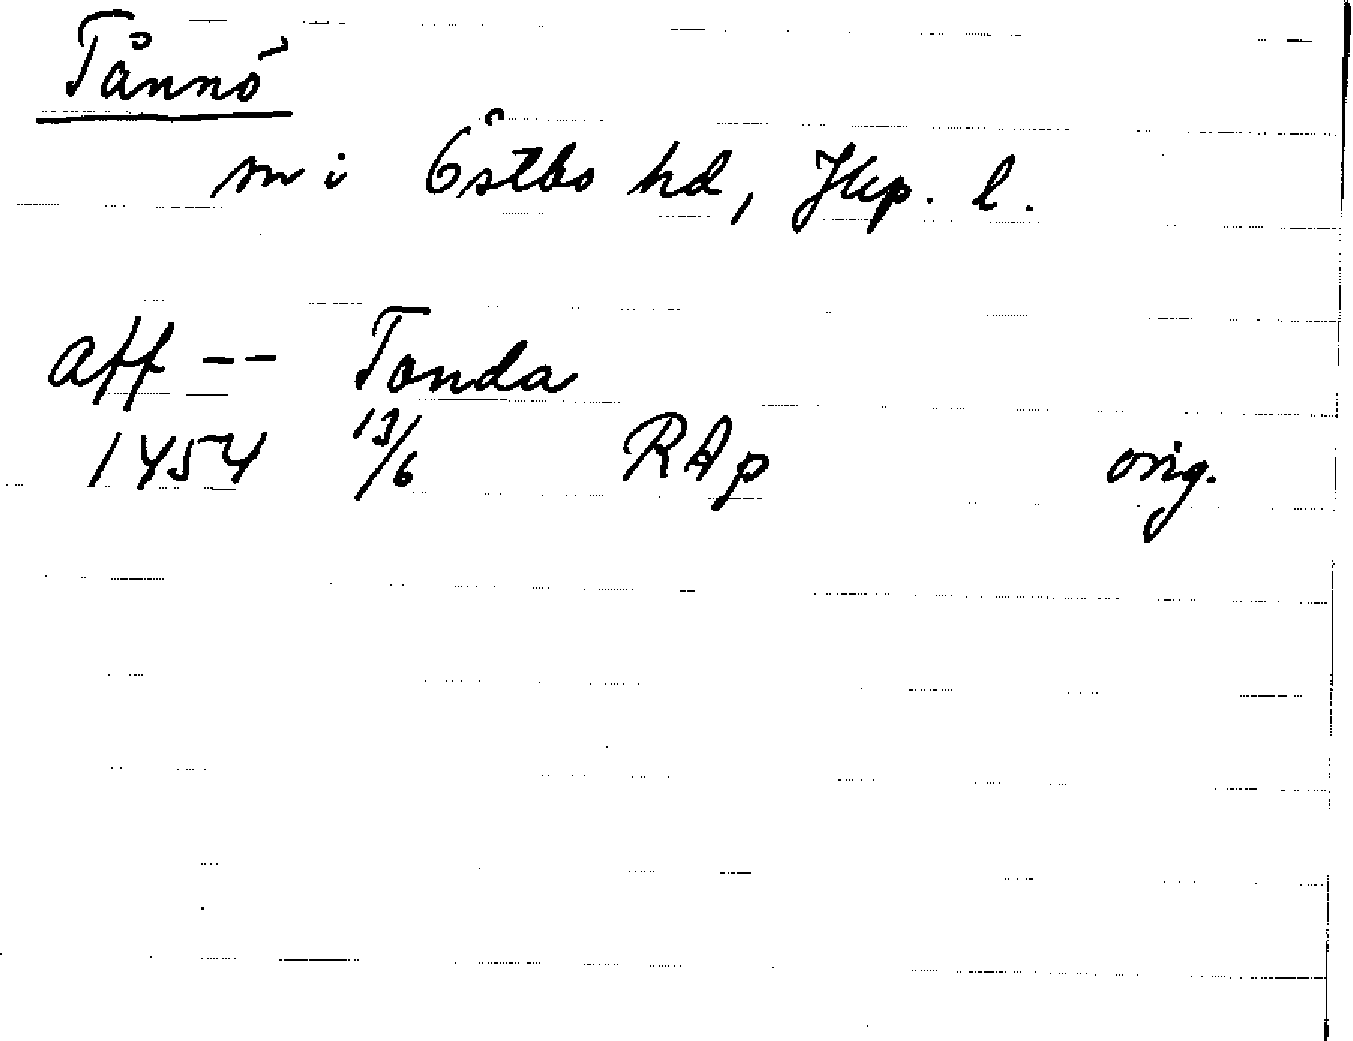 Tånnö
sn i Östbo hd, Jkp. l.
aff -- Tonda
1454 13/6 RAp orig.